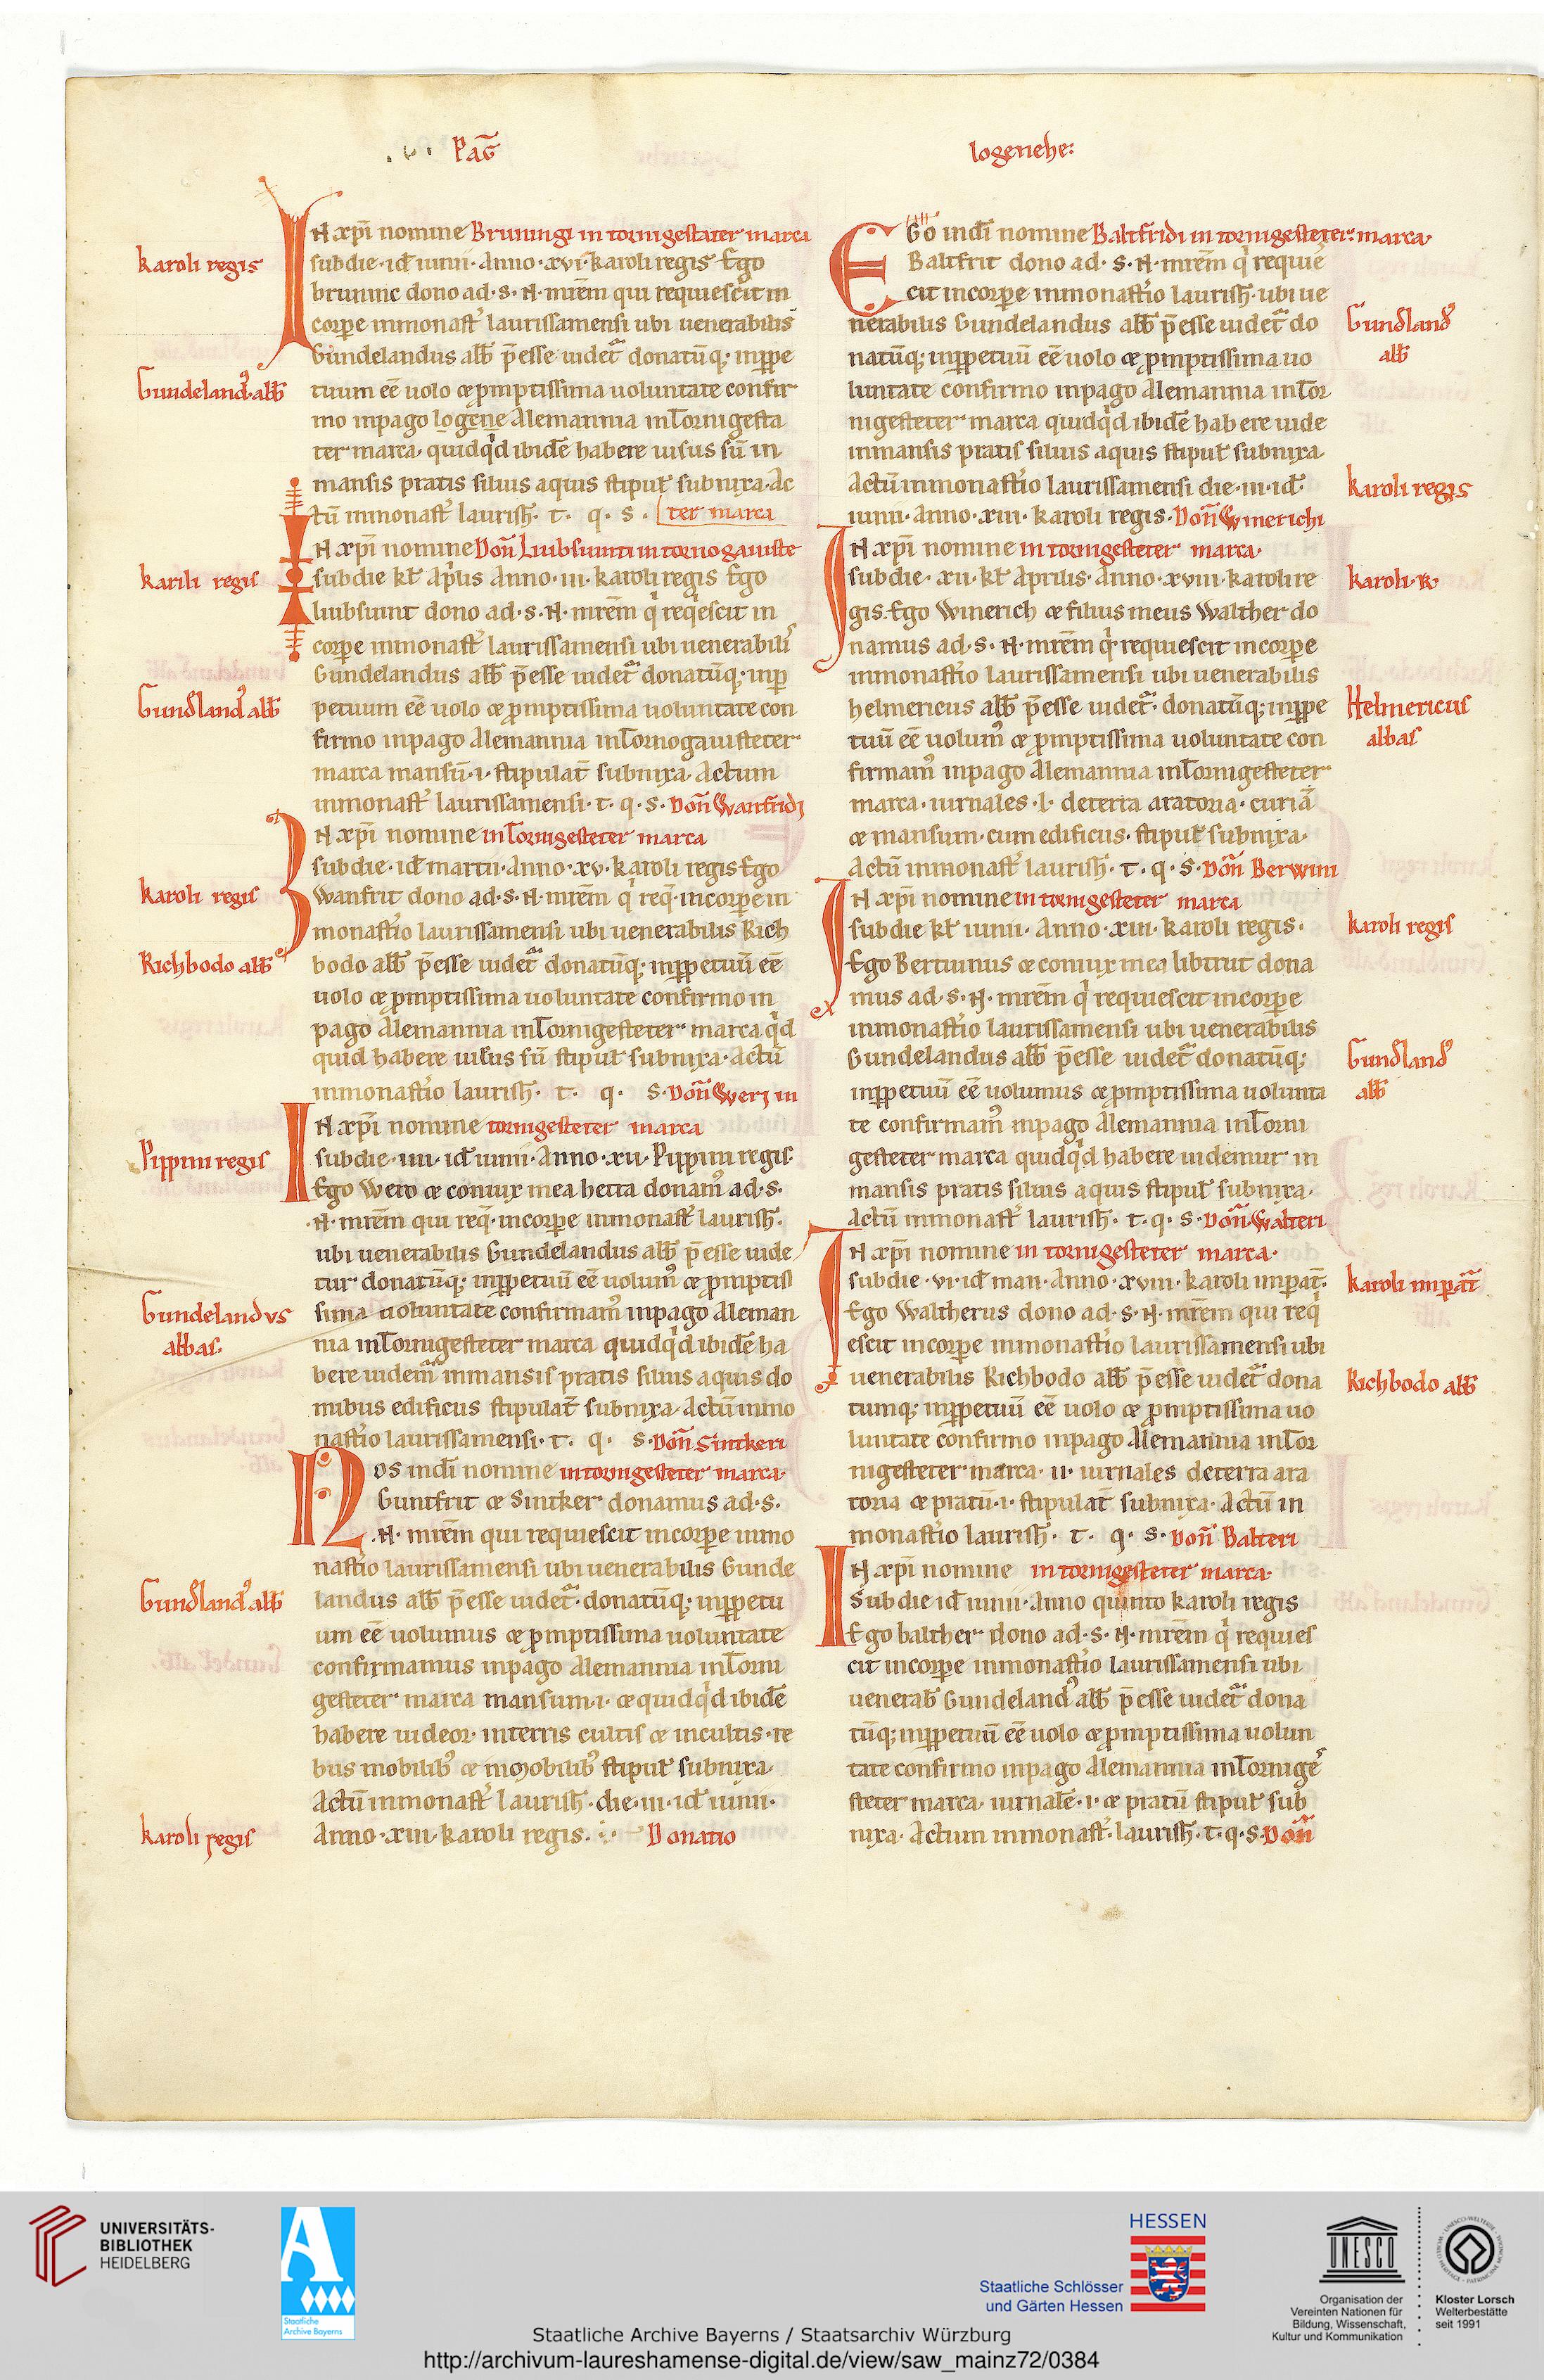 Pag̅ logenehe:
IN xp̅i nomine Bruningi in tornigestater marca
karoli regis
sub die · id̅ iunii · Anno · xvi · karoli regis Ego
bruninc dono ad · s · N · mr̅em qui requiescit in
corp̲e in monast̅ laurissamensi ubi uenerabilis
Gundelandus abb̅ p̅esse uidet̅ donatu̅q; in p̲pe
Gundeland᷒ · abb̅
tuum ee̅ uolo & p̲mptissima uoluntate confir
mo in pago logene Alemannia in Tornigesta
ter marca · quidqd̅ ibide̅ habere uisus su̅ in
mansis pratis siluis aquis stipul̅ subnixa · Ac
tu̅ in monast̅ laurish̅ · t · q · s · ter marca
IN xp̅i nomine Don̅ Liubsuinti in tornogauiste
karili regis
sub die kl̅ ap̅lis Anno · iii · karoli regis Ego
liubsuint dono ad · s · N · mr̅em q̍ req̍escit in
corp̲e in monast̅ laurissamensi ubi uenerabili᷒
Gundelandus abb̅ p̅esse uidet̅ donatu̅q; in p̲
Gundland᷒ abb̅
petuum ee̅ uolo & p̲mptissima uoluntate con
firmo in pago Alemannia in Tornogauisteter
marca mansu̅ · i · stipulat̅ subnixa · Actum
in monast̅ laurissamensi · t · q · s · Don̅ Wanfridi
IN xp̅i nomine in Tornigesteter marca
sub die · id̅ martii · Anno · xv · karoli regis Ego
karoli regis
Wanfrit dono ad · s · N · mr̅em q̍ req̅ · in corp̲e in
monast̅io laurissamensi ubi uenerabilis Rich
Richbodo abb̅
bodo abb̅ p̅esse uidet̅ donatu̅q; in p̲petuu̅ ee̅
uolo & p̲mptissima uoluntate confirmo in
pago Alemannia in Tornigesteter marca q̍d
quid habere uisus su̅ stipul̅ subnixa · Actu̅
in monast̅io laurish̅ · t · q · s · Don̅ Weri in
IN xp̅i nomine tornigesteter marca
Pippini regis
sub die · iiii · id̅ iunii · Anno · xii · Pippini regis ·
Ego Wero & coniux mea hetta donam᷒ ad · s ·
· N · mr̅em qui req̅ · in corp̲e in monast̅ laurish̅ ·
ubi uenerabilis Gundelandus abb̅ p̅esse uide
tur donatu̅q; in p̲petuu̅ ee̅ uolum᷒ & p̲mptis
Gundelandus
sima uoluntate confirmam᷒ in pago Aleman
abbas ·
nia in Tornigesteter marca quidqd̅ ibide̅ ha
bere uidem᷒ in mansis pratis siluis aquis do
mibus edificiis stipulat̅ subnixa · Actu̅ in mo
nast̅io laurissamensi · t · q · s · Don̅ Sintkeri
Nos in di̅ nomine in tornigesteter marca ·
Guntfrit & Sintker donamus ad · s ·
· N · mr̅em qui requiescit in corp̲e in mo
nast̅io laurissamensi ubi uenerabilis Gunde
Gundland᷒ abb̅
landus abb̅ p̅esse uidet̅ · donatu̅q; in p̲petu
um ee̅ uolumus & p̲mptissima uoluntate
confirmamus in pago Alemannia in Torni
gesteter marca mansum · i · & quidqd̅ ibide̅
habere uideor · in terris cultis & incultis · re
bus mobilib᷒ & in mobilib᷒ stipul̅ subnixa ·
Actu̅ in monast̅ laurish̅ · die · iii · id̅ iunii ·
karoli regis
Anno · xiii · karoli regis · Donatio
Ego in di̅ nomine Baltfridi in tornigesteter marca ·
Baltfrit dono ad · s · N · mr̅em q̍ requie
cit in corp̲e in monast̅io laurish̅ · ubi ue
nerabilis Gundelandus abb̅ p̅esse uidet̅ do
Gundland᷒
natu̅q; in p̲petuu̅ ee̅ uolo & p̲mptissima uo
abb̅
luntate confirmo in pago Alemannia in Tor
nigesteter marca quidqd̅ ibide̅ habere uide
in mansis pratis siluis aquis stipul̅ subnixa ·
Actu̅ in monast̅io laurissamensi die · iii · id̅ ·
karoli regis
iunii · Anno · xiii · karoli regis · Don̅ Winerichi
IN xp̅i nomine in tornigesteter marca ·
sub die · xii · kl̅ Aprilis · Anno · xviii · karoli re
karoli · r̅ ·
gis · Ego Winerich & filius meus Walther do
namus ad · s · N · mr̅em q̍ requiescit in corp̲e
in monast̅io laurissamensi ubi uenerabilis
helmericus abb̅ p̅esse uidet̅ · donatu̅q; in p̲pe
Helmericus
tuu̅ ee̅ uolum᷒ & p̲mptissima uoluntate con
abbas
firmam᷒ in pago Alemannia in Tornigesteter
marca · iurnales · l · de terra aratoria · curia̅
& mansum · cum edificiis · stipul̅ subnixa ·
Actu̅ in monast̅ laurish̅ · t · q · s · Don̅ Berwini
IN xp̅i nomine in tornigesteter marca
sub die kl̅ iunii · Anno · xiii · karoli regis ·
karoli regis
Ego Bertiunus & coniux mea libitut dona
mus ad · s · N · mr̅em q̍ requiescit in corp̲e
in monast̅io laurissamensi ubi uenerabilis
Gundelandus abb̅ p̅esse uidet̅ donatu̅q;
Gundland᷒
in p̲petuu̅ ee̅ uolumus & p̲mptissima uolunta
abb̅
te confirmam᷒ in pago Alemannia in Torni
gesteter marca quidqd̅ habere uidemur in
mansis pratis siluis aquis stipul̅ subnixa ·
Actu̅ in monast̅ laurish̅ · t · q · s · Don̅ · Walteri
IN xp̅i nomine in tornigesteter marca ·
sub die · vi · id̅ maii · Anno · xviii · karoli imp̲at̅ ·
karoli imp̲at̅
Ego Waltherus dono ad · s · N · mr̅em qui req̍
escit in corp̲e in monast̅io laurissamensi ubi
uenerabilis Richbodo abb̅ p̅esse uidet̅ dona
Richbodo abb̅
tumq; in p̲petuu̅ ee̅ uolo & p̲mptissima uo
luntate confirmo in pago Alemannia in Tor
nigesteter marca · ii · iurnales de terra ara
toria & pratu̅ · i · stipulat̅ subnixa · Actu̅ in
monast̅io laurish̅ · t · q · s · Don̅ Balteri
IN xp̅i nomine in tornigesteter marca ·
Sub die id̅ iunii · Anno quinto karoli regis
Ego balther dono ad · s · N · mr̅em q̍ requies
cit in corp̲e in monast̅io laurissamensi ubi
uenerab̅ Gundeland᷒ abb̅ p̅esse uidet̅ dona
tu̅q; in p̲petuu̅ ee̅ uolo & p̲mptissima uolun
tate confirmo in pago Alemannia in Tornige
steter marca · iurnale̅ · i · & pratu̅ stipul̅ sub
nixa · Actum in monast̅ · laurish̅ · t · q · s · Don̅
UNIVERSITÄTS-
BIBLIOTHEK
HEIDELBERG
Staatliche
Archive Bayerns
HESSEN
Staatliche Schlösser
und Gärten Hessen
UNESCO
Organisation der
Vereinten Nationen für
Bildung, Wissenschaft,
Kultur und Kommunikation
Kloster Lorsch
Welterbestätte
seit 1991
Staatliche Archive Bayerns / Staatsarchiv Würzburg
http://archivum-laureshamense-digital.de/view/saw_mainz72/0384